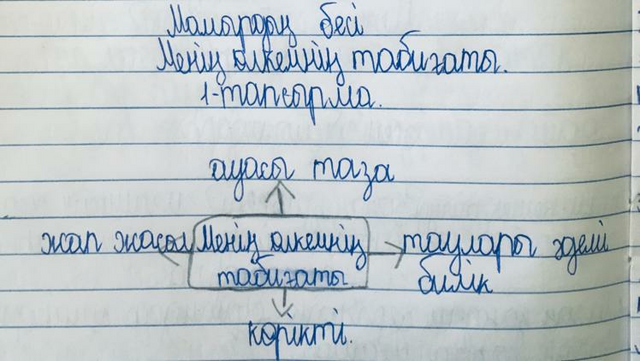 Мамырдың бесі
Менің өлкемнің табиғаты.
1-тапсырма.
ауасы таза
жап жасыл
Менің өлкемнің
табиғаты
таулары әдемі
билік
көрікті.